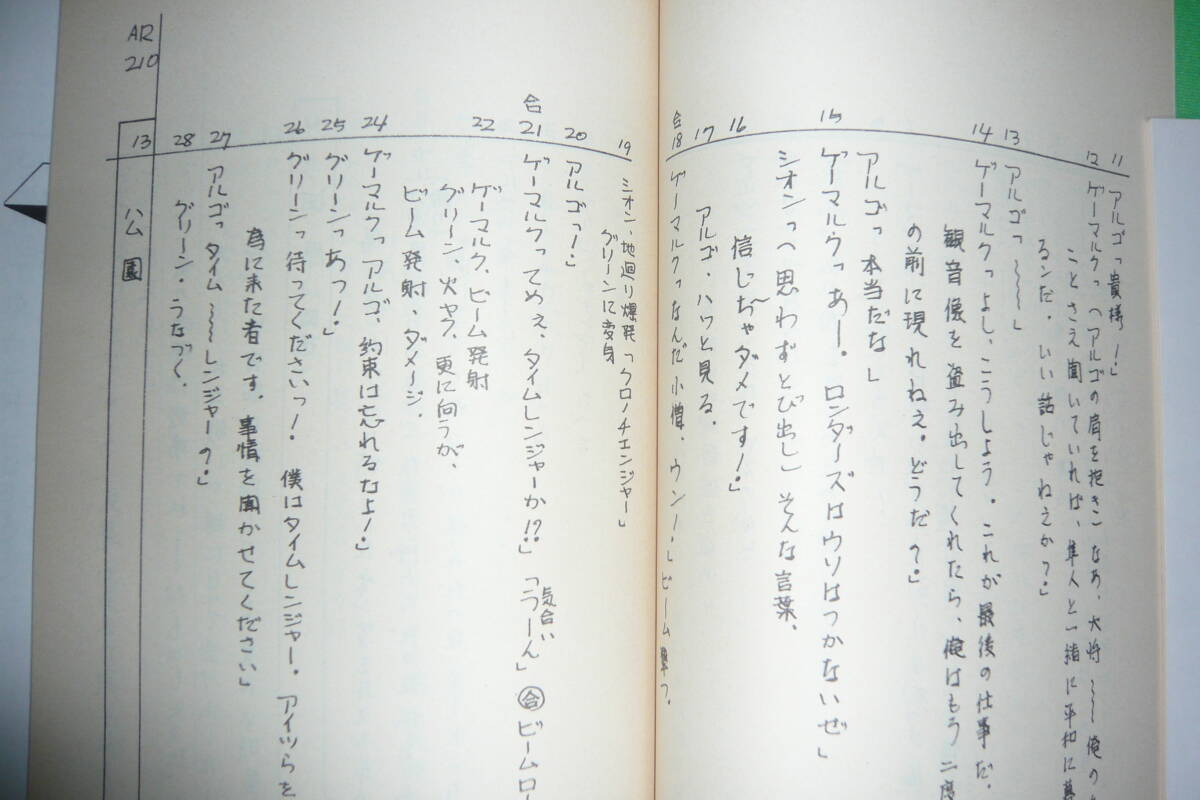 11 アルゴっ貴様!」
12 ゲーマルクっ(アルゴの肩を抱き)なあ、大将 〜〜〜 俺の
ことさえ聞いていれば、隼人と一緒に平和に暮
るンだ。いい話じゃねえか?」
13 アルゴっ 〜〜〜」
14 ゲーマルクっよし、こうしよう。これが最後の仕事だ。
観音像を盗み出してくれたら、俺はもう二度
の前に現れねえ。どうだ?」
アルゴっ本当だな」
15 ゲーマルクっあー。ロンダーズはウソはつかないぜ」
シオンっ(思わずとび出し)そんな言葉、
16 信じちゃダメです!」
17 アルゴ、ハッと見る。
合18 ゲーマルクっなんだ小僧、ウン!」ビーム撃つ。
19 シオン、地廻り爆発「クロノチェンジャー」
グリーンに変身
20 アルゴっ!」
合21 ゲーマルクってめえ、タイムレンジャーか!?」「うーん」気合い 合 ビームロ
22 ゲーマルク、ビーム発射
グリーン、火ヤク、更に向うが、
ビーム発射、ダメージ。
24 ゲーマルクっアルゴ、約束は忘れるなよ!」
25 グリーンっあっ!」
26 グリーンっ待ってくださいっ! 僕はタイムレンジャー。アイツらを
為に来た者です。事情を聞かせてください」
27 アルゴっタイム〜〜〜レンジャーの?」
28 グリーン・うなづく、
13 公園
AR
210